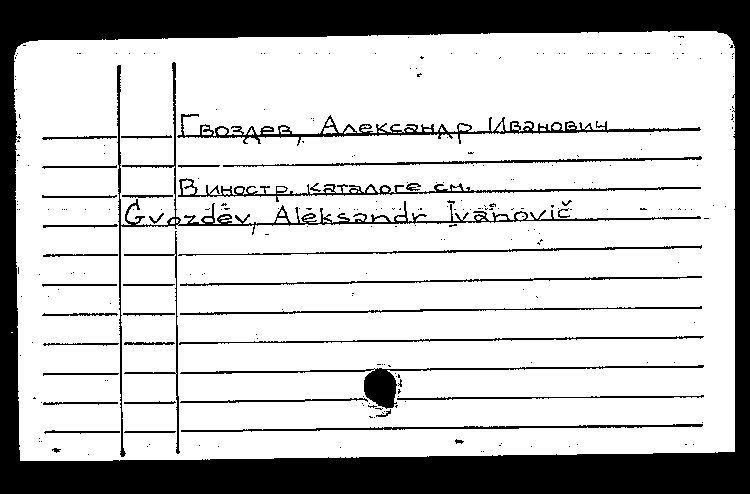 Гвоздев, Александр Иванович
В иностр. каталоге см.
Gvozdev, Aleksandr Ivanovič